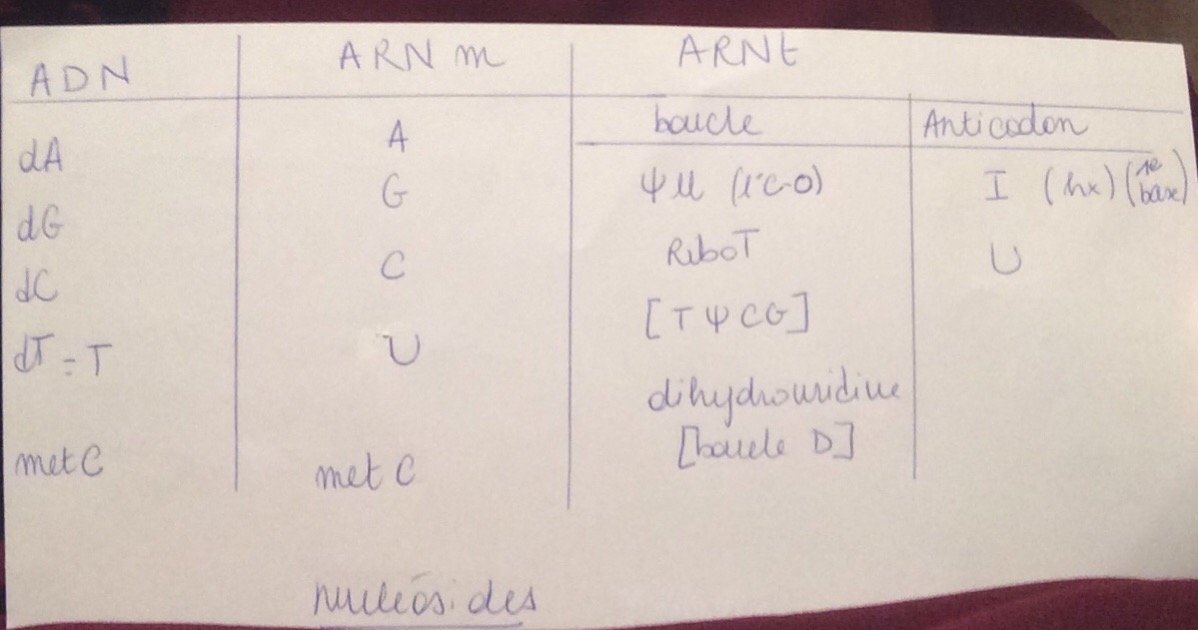 ADN ARN m ARNt
boucle Anticodon
dA A ΨU (1'C-O) I (hx) (1e base)
dG G RiboT U
dC C [T Ψ C G]
dT = T U dihydrouridine
[boucle D]
met C met C
nucléosides